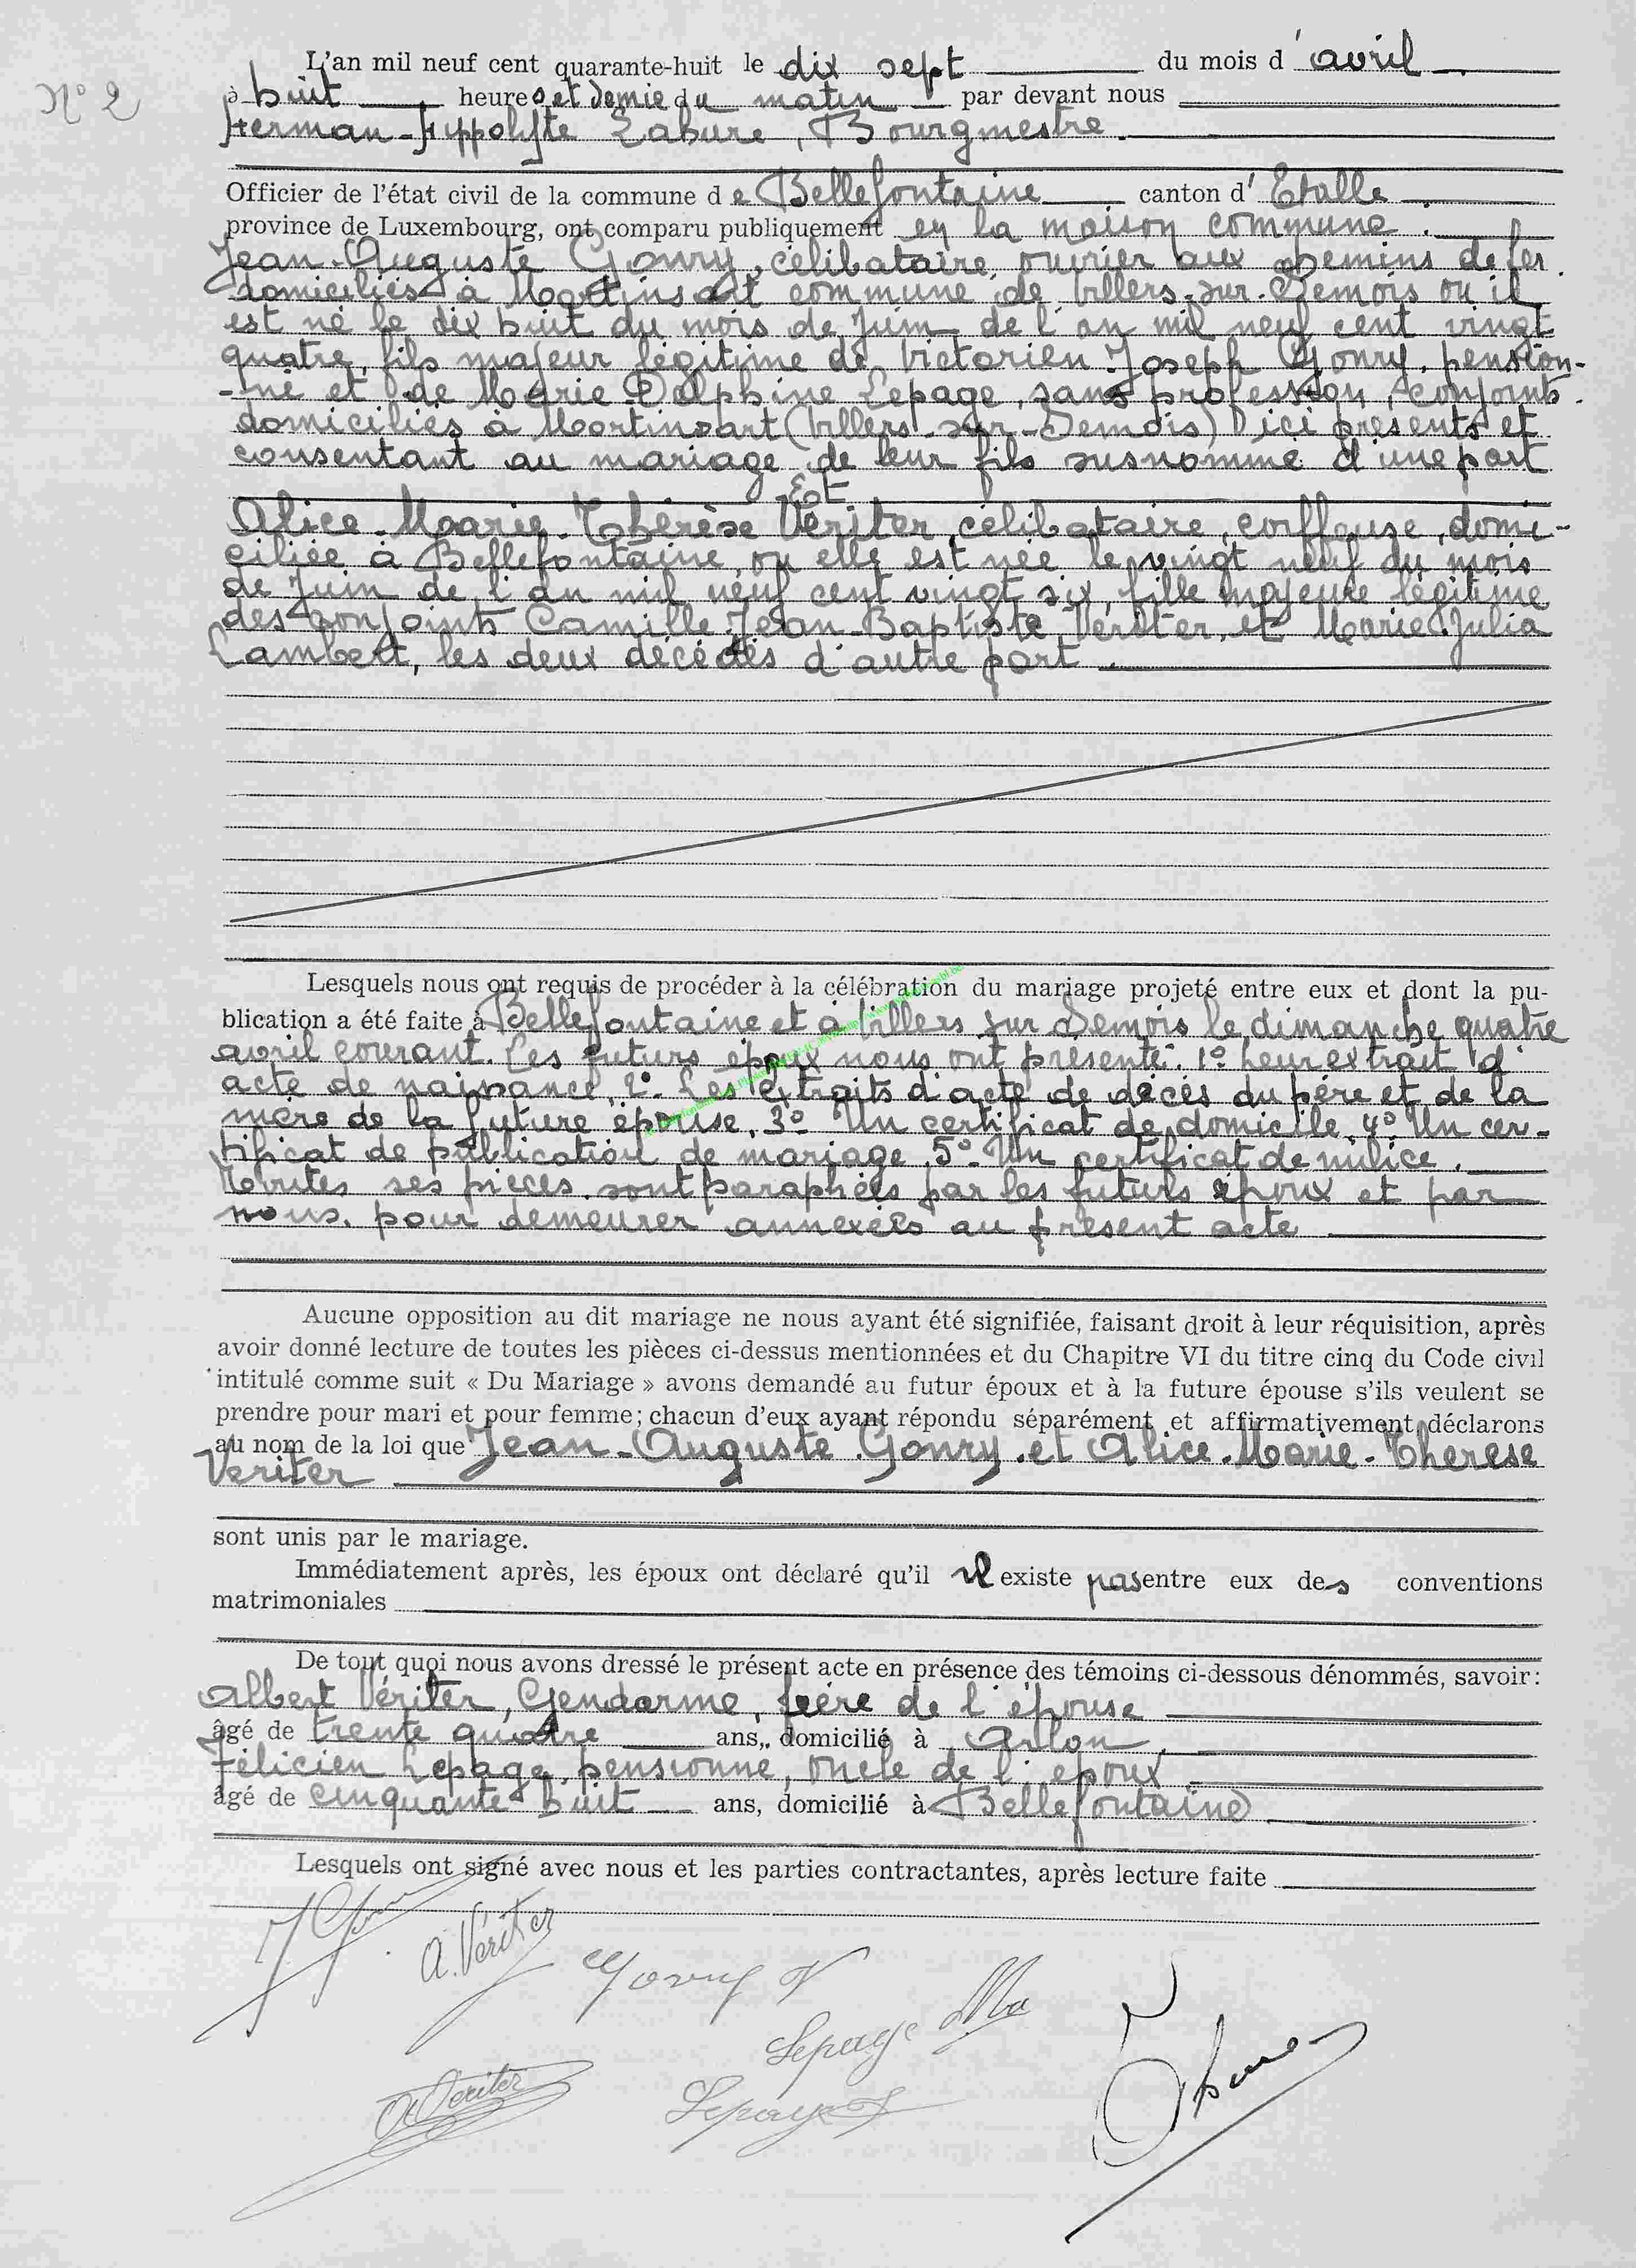 N° 2
L'an mil neuf cent quarante-huit le dix sept du mois d'avril
à huit heures et demie du matin par devant nous
Herman-Hippolyte Labure, Bourgmestre.
Officier de l'état civil de la commune de Bellefontaine canton d'Etalle
province de Luxembourg, ont comparu publiquement en la maison commune.
Jean-Auguste Gonry, célibataire, ouvrier aux chemins de fer
domiciliés à Mortinsart commune de Villers-sur-Semois où il
est né le dix huit du mois de Juin de l'an mil neuf cent vingt
quatre, fils majeur légitime de Victorien Joseph Gonry, pension-
-né et de Marie Delphine Lepage, sans profession, conjoints
domiciliés à Mortinsart (Villers-sur-Semois) ici présents et
consentant au mariage de leur fils susnommé d'une part
Et
Alice-Marie-Thérèse Vériter, célibataire, coiffeuse, domi-
ciliée à Bellefontaine, où elle est née le vingt neuf du mois
de Juin de l'an mil neuf cent vingt six, fille majeure légitime
des conjoints Camille Jean-Baptiste Vériter, et Marie Julia
Lambert, les deux décédés d'autre part.
Lesquels nous ont requis de procéder à la célébration du mariage projeté entre eux et dont la pu-
blication a été faite à Bellefontaine et à Villers sur Semois le dimanche quatre
avril courant. Les futurs époux nous ont présenté: 1° leur extrait d'
acte de naissance, 2° Les extraits d'acte de décès du père et de la
mère de la future épouse, 3° Un certificat de domicile, 4° Un cer-
tificat de publication de mariage, 5° Un certificat de milice.
Toutes ses pièces sont paraphées par les futurs époux et par
nous, pour demeurer annexées au présent acte
Aucune opposition au dit mariage ne nous ayant été signifiée, faisant droit à leur réquisition, après
avoir donné lecture de toutes les pièces ci-dessus mentionnées et du Chapitre VI du titre cinq du Code civil
intitulé comme suit « Du Mariage » avons demandé au futur époux et à la future épouse s'ils veulent se
prendre pour mari et pour femme; chacun d'eux ayant répondu séparément et affirmativement, déclarons
au nom de la loi que Jean-Auguste Gonry et Alice-Marie-Thérèse
Vériter
sont unis par le mariage.
Immédiatement après, les époux ont déclaré qu'il n'existe pas entre eux des conventions
matrimoniales
De tout quoi nous avons dressé le présent acte en présence des témoins ci-dessous dénommés, savoir:
Albert Vériter, Gendarme, frère de l'épouse
âgé de trente quatre ans, domicilié à Arlon,
Félicien Lepage, pensionné, oncle de l'époux
âgé de cinquante huit ans, domicilié à Bellefontaine
Lesquels ont signé avec nous et les parties contractantes, après lecture faite
A. Vériter
Gonry V
Lepage Ma
A Veriter
Lepage F